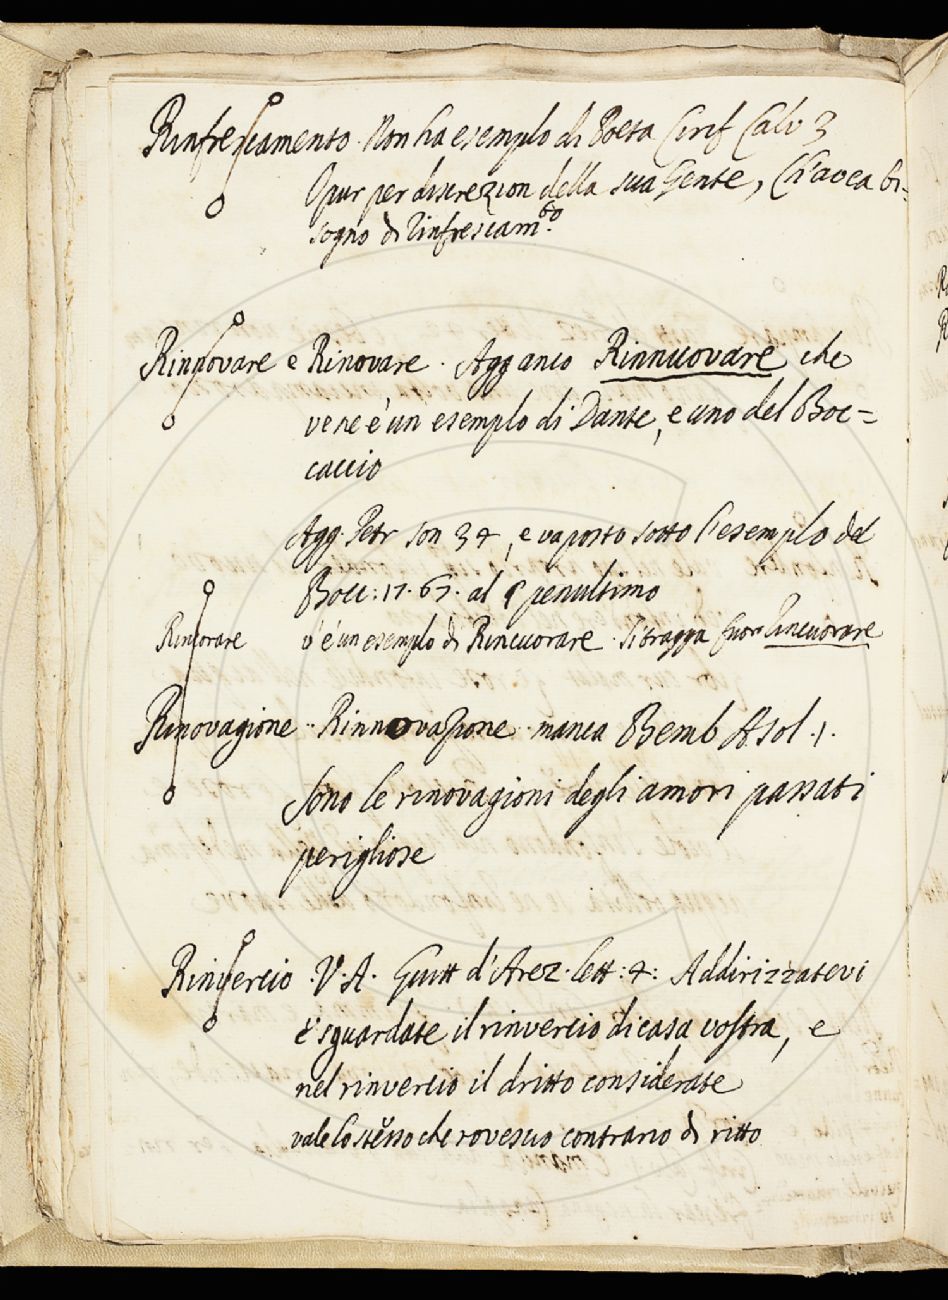 Rinfrescamento. Non ha esemplo di Poeta Cirif Calv 3
Pur per discrezion della sua Gente, Ch'avea bi-
sogno di Rinfrescam.to
Rinnovare e Rinovare. Agg anco Rinnuovare che
vene è un esemplo di Dante, e uno del Boc=
caccio
Agg. Petr son 34, e va posto sotto l'esemplo del
Bocc: 17. 67. al penultimo
Rincorare v'è un esemplo di Rincuorare. Si tragga fuor Rincuorare
Rinovagione. Rinnovazione manca Bemb Asol. 1.
Sono le rinovagioni degli amori passati
perigliose
Rinvercio. V.A. Guitt d'Arez. lett: 4: Addirizzatevi
e sguardate il rinvercio di casa vostra, e
nel rinvercio il dritto considerate
vale lo stesso che rovescio contrario di ritto